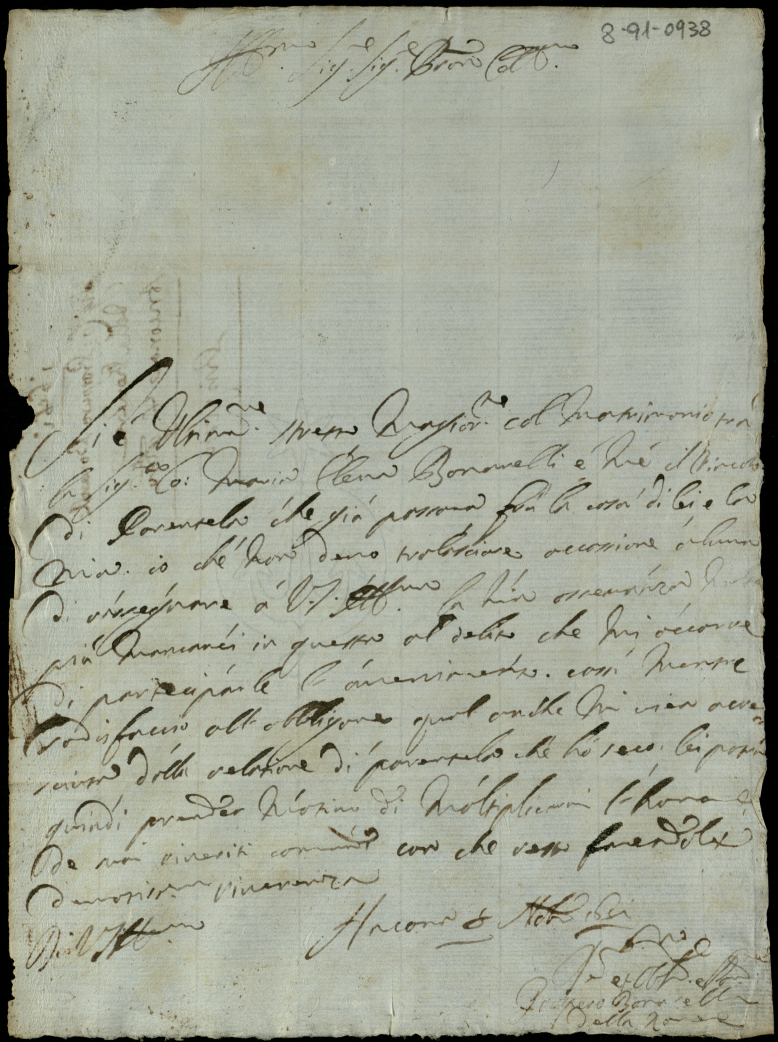 8-91-0938
Ill.mo Sig.r Sig.r Pron Col.mo
Si è Ultima.te stretto Maggior.te col matrimonio trà
la Sig.ra Co: Maria Elena Bonarelli e Mè il Vincolo
di Parentela che già passava frà la casa di lei e la
mia. io che non devo tralasciare occasione alcuna
di rassegnare à V.S. Ill.ma la mia osservanza
più mancarei in questa al debito che mi occorre
di participarle l'avvenimento. così mentre
sodisfaccio all'obligatione qual anche mi vien accre
sciuta dalla relatione di parentela che hò seco, lei potrà
quindi prender Motivo di Moltiplicarmi l'honore
de suoi riveriti comandi con che resto facendole
devotissima riverenza
Di V.S. Ill.ma
Ancona 8
Bonarelli
Della Rovere